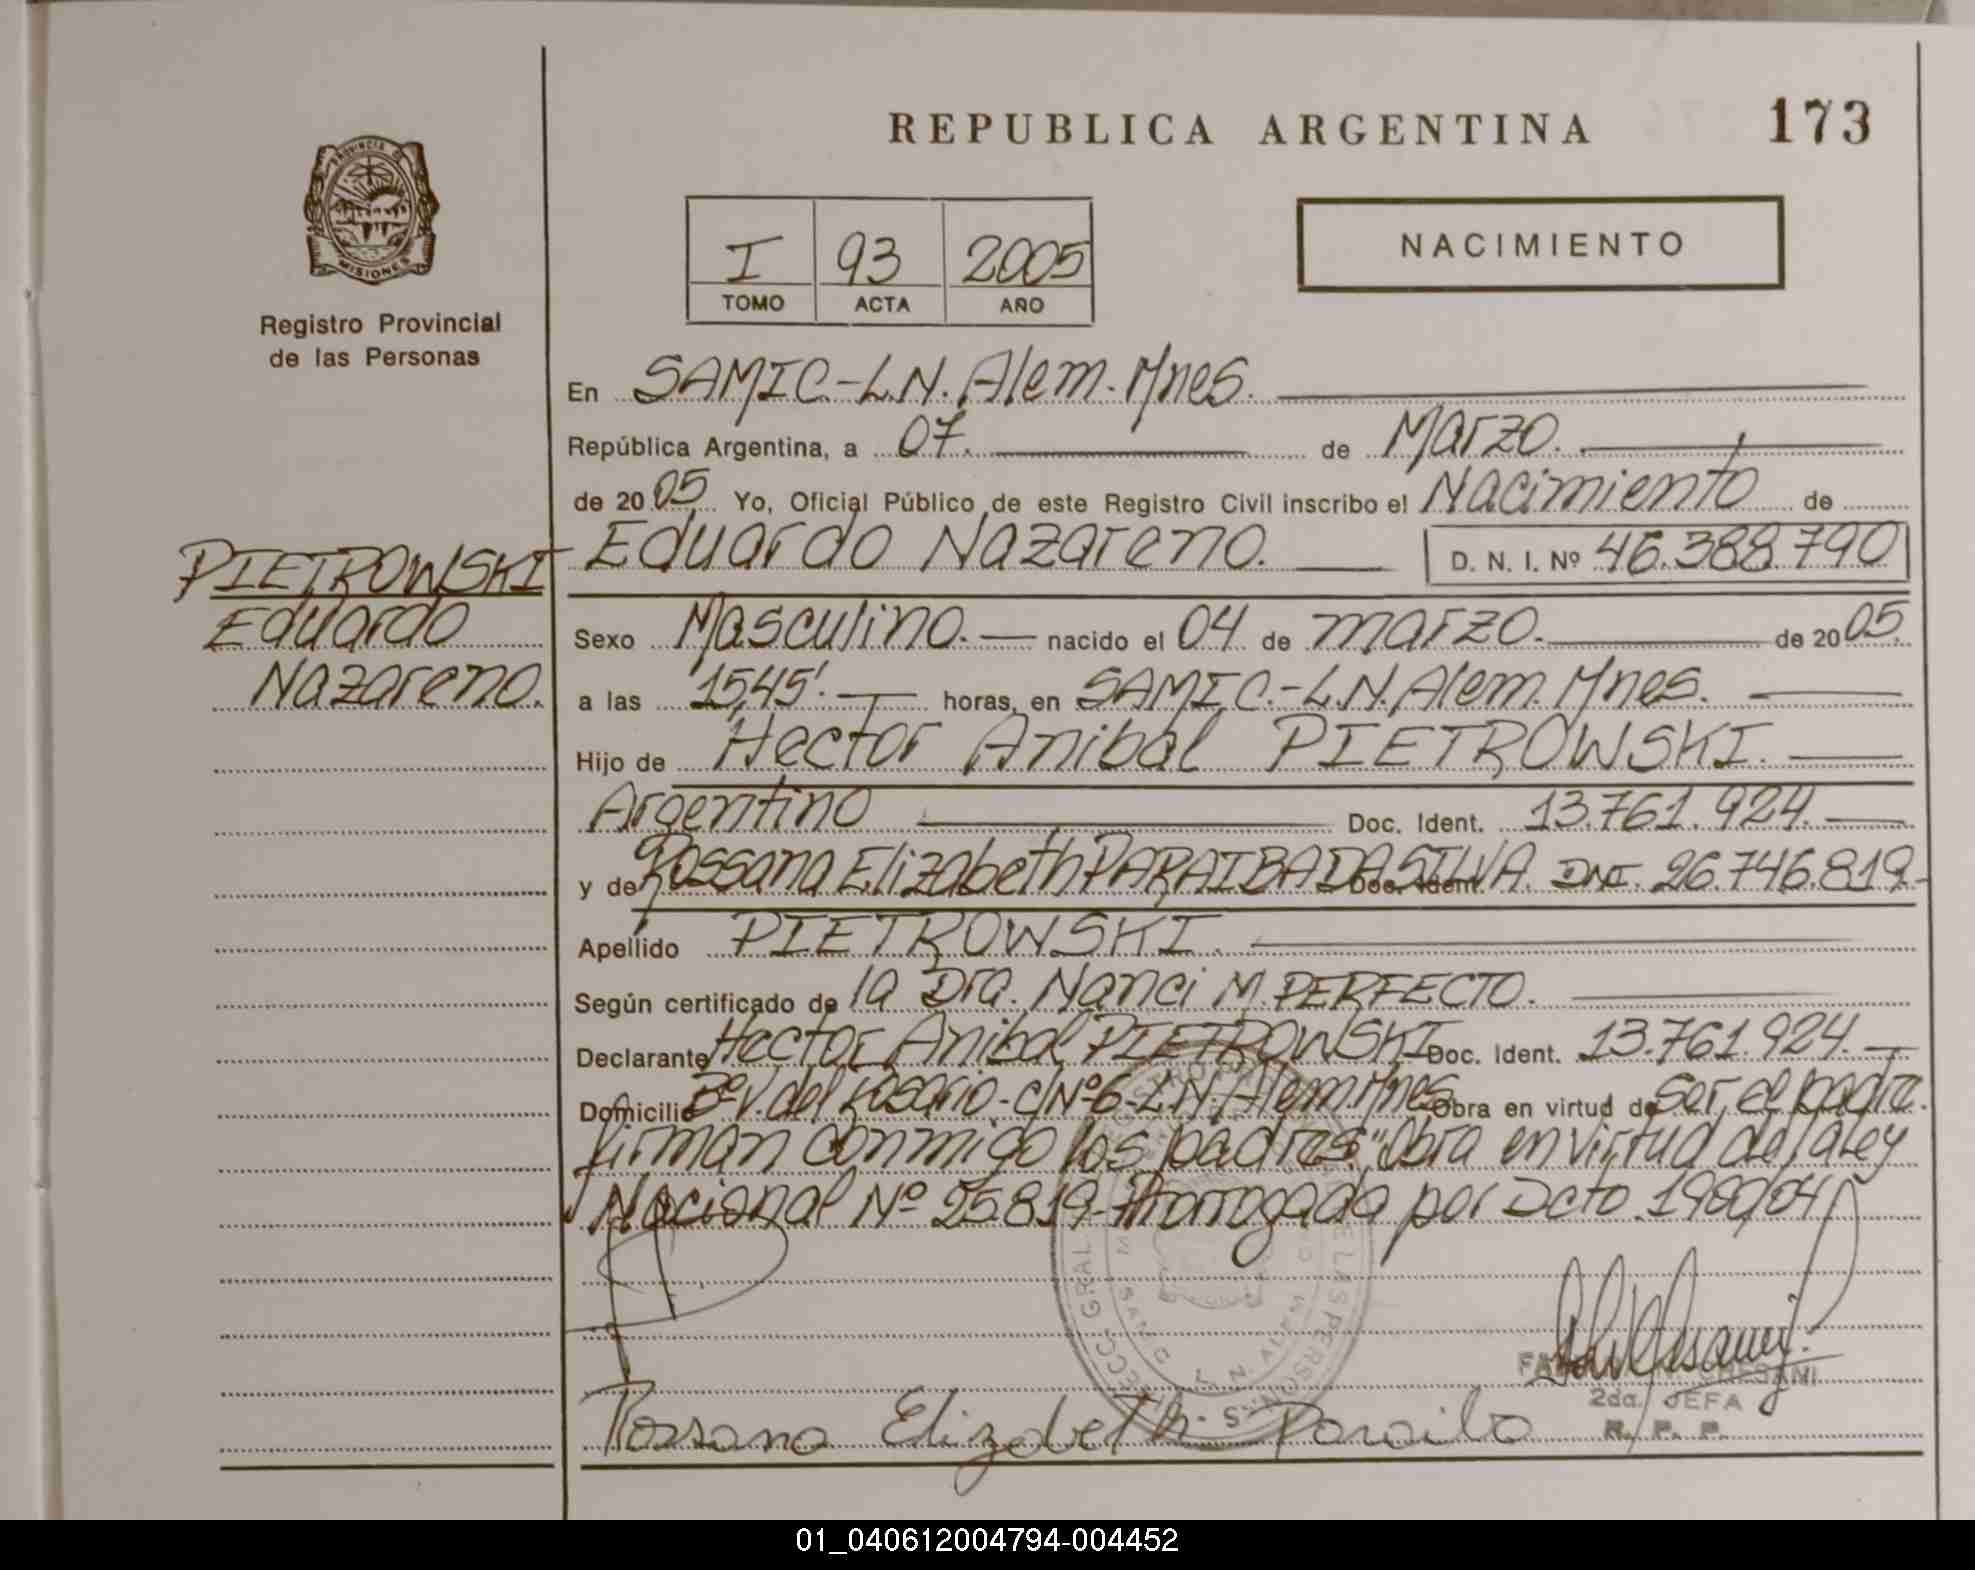 REPUBLICA ARGENTINA
173
PROVINCIA DE
MISIONES
Registro Provincial
de las Personas
I 93 2005
TOMO ACTA AÑO
NACIMIENTO
En SAMIC.-L.N. Alem. Mnes.
República Argentina, a 07. de Marzo.
de 2005 Yo, Oficial Público de este Registro Civil inscribo el Nacimiento de
Eduardo Nazareno. D. N. I. Nº 46.388.790
PIETROWSKI
Eduardo
Nazareno.
Sexo Masculino. nacido el 04 de marzo. de 2005.
a las 15,45'. horas, en SAMIC.-L.N. Alem. Mnes.
Hijo de Hector Anibal PIETROWSKI.
Argentino Doc. Ident. 13.761.924.
y de Rossana Elizabeth PARAIBA DA SILVA. Doc. Ident. DNI. 26.746.819.-
Apellido PIETROWSKI.
Según certificado de la Dra. Nanci M. PERFECTO.
Declarante Hector Anibal PIETROWSKI Doc. Ident. 13.761.924.
Domicilio Bº V. del Rosario - C/Nº 6-L.N. Alem Mnes Obra en virtud de ser el padre.
firman conmigo los padres "Obra en virtud de la ley
Nacional Nº 25.819-Prorrogada por Dcto. 1980/04
2da. JEFA
R. P. P.
Rossana Elizabeth Paraiba
01_040612004794-004452